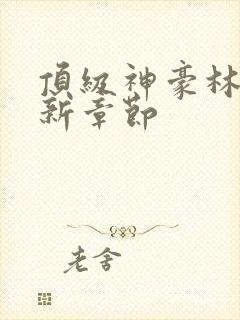 頂級神豪林
新章節
老舍